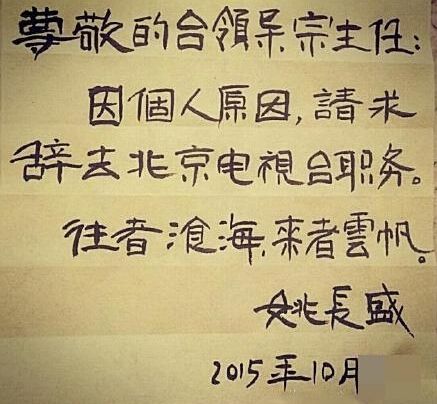 尊敬的台領导宗主任:
因個人原因,請求
辞去北京电視台职务。
往者滄海,來者雲帆。
姚長盛
2015年10月